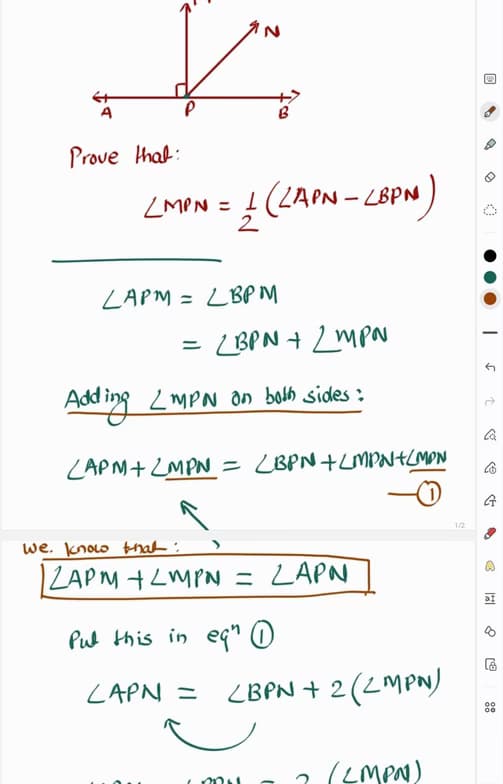 N
A P B
Prove that:
∠MPN = 1/2 (∠APN − ∠BPN)
∠APM = ∠BPM
= ∠BPN + ∠MPN
Adding ∠MPN on both sides:
∠APM + ∠MPN = ∠BPN + ∠MPN + ∠MPN
—①
1/2
we. know that:
∠APM + ∠MPN = ∠APN
Put this in eqⁿ ①
∠APN = ∠BPN + 2(∠MPN)
(∠MPN)